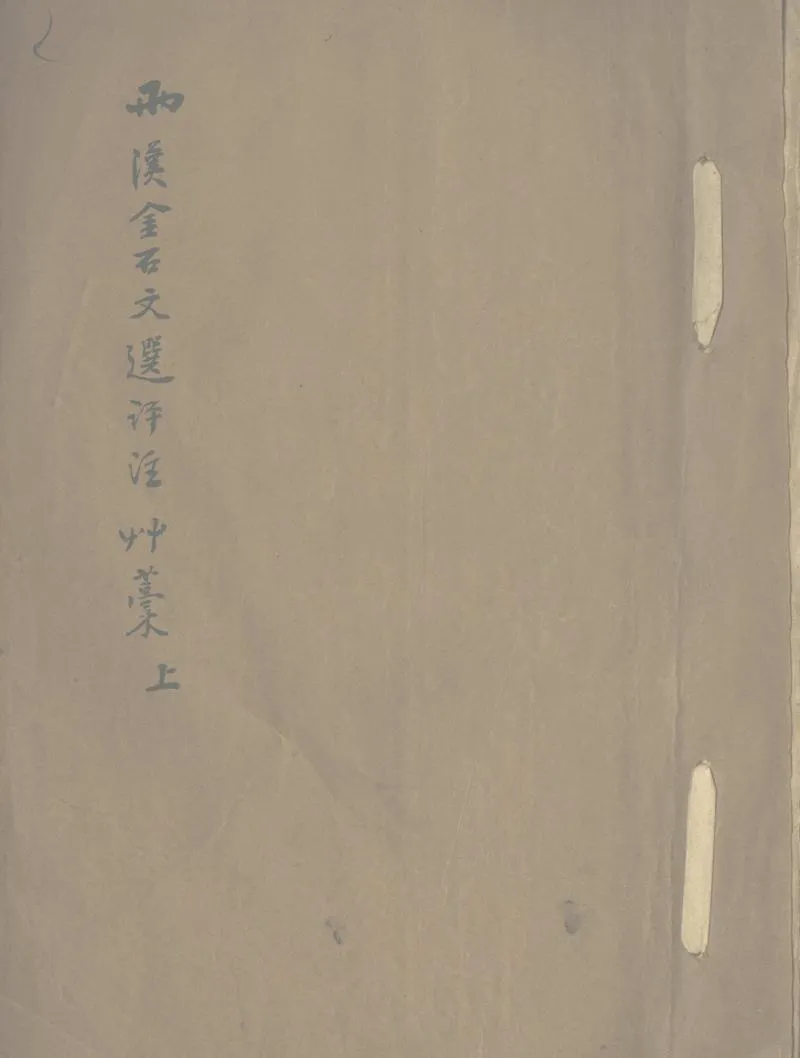 兩漢金石文選評注 艸藁 上